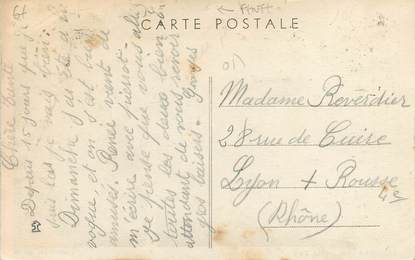 CARTE POSTALE
Chère tante
Depuis 15 jours que je
suis là je vais bien.
Dimanche j'ai été à la
vogue et on s'est bien
amusés. Renée vient de
m'écrire avec pierrot
je pense que vous allez
toutes les deux bien en
attendant de vous revoir
gros baisers. Georges
Madame Reverdier
28 rue de Cuire
Lyon + Rousse
(Rhône)